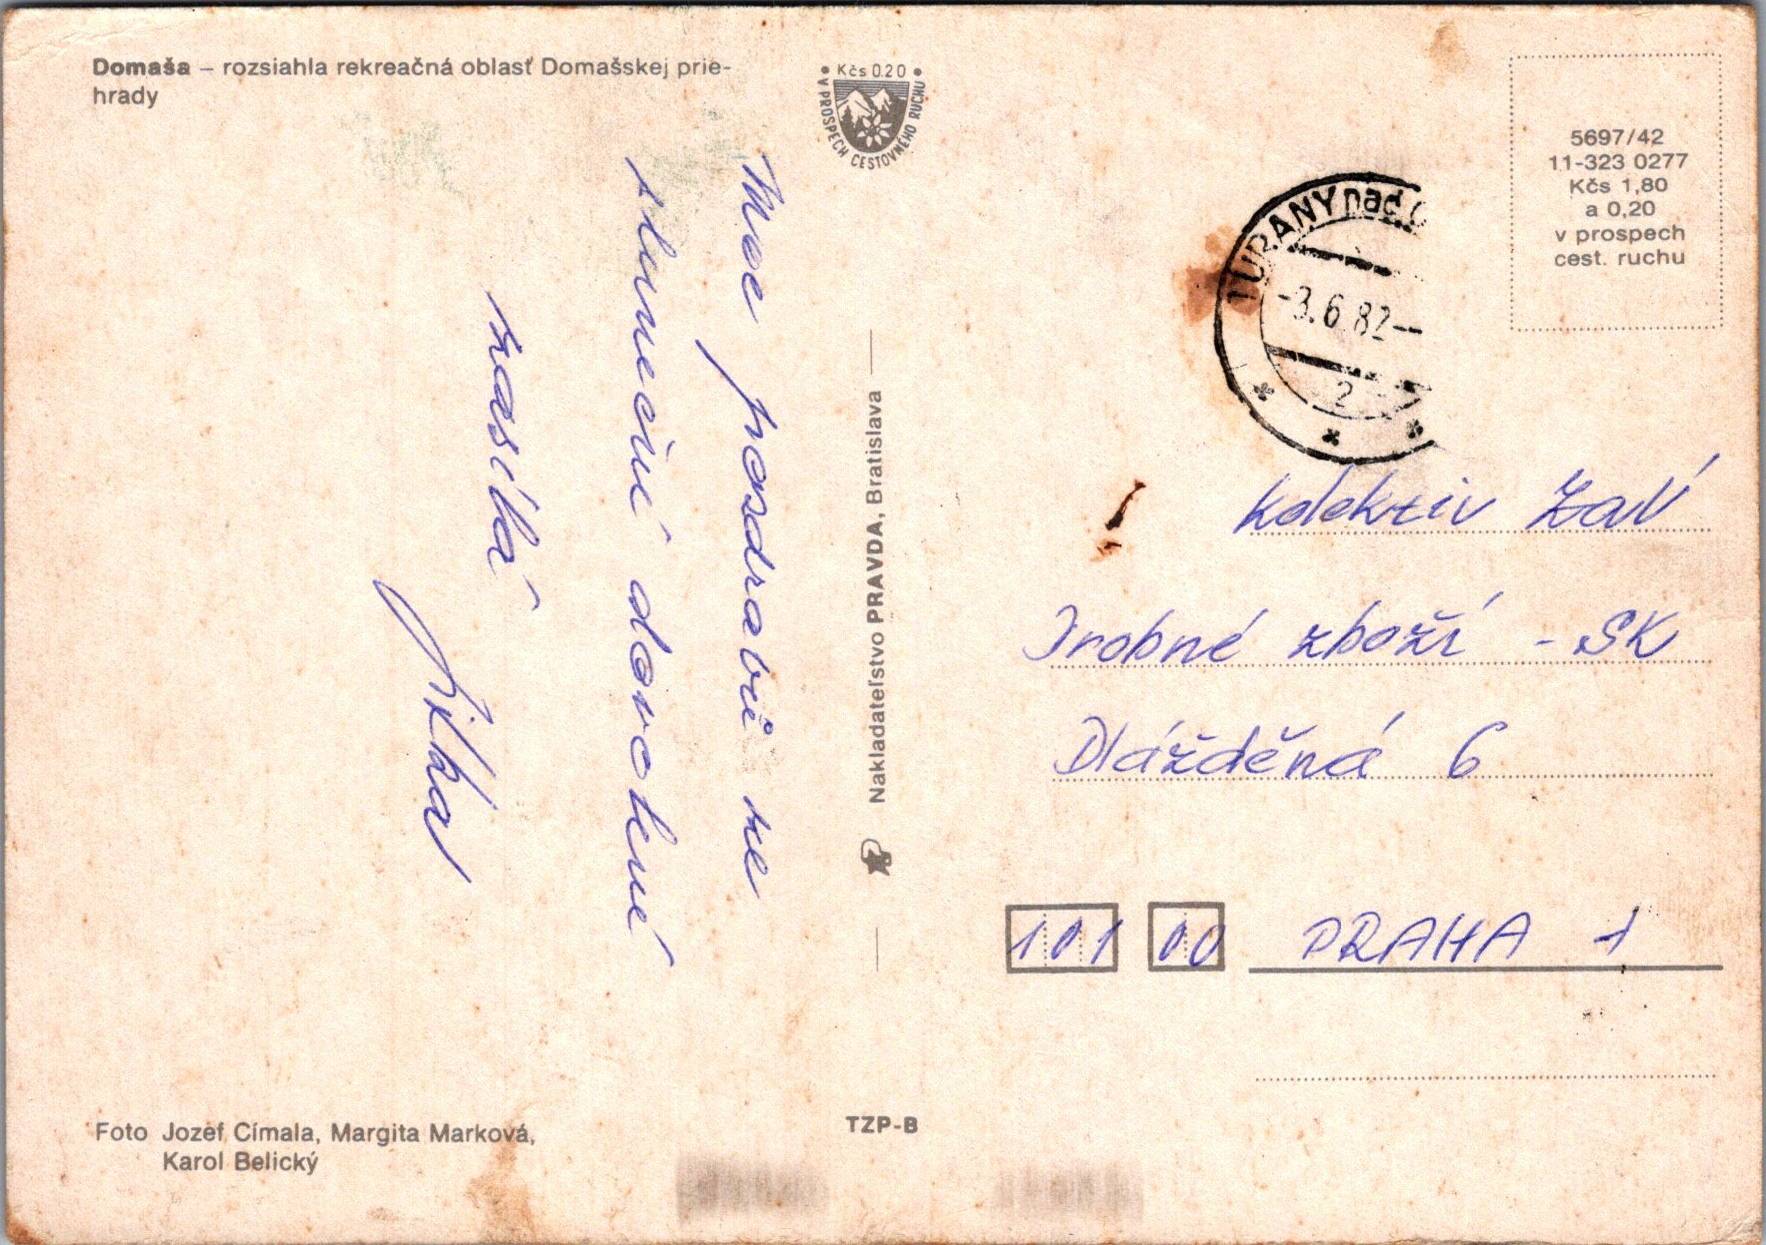 Domaša – rozsiahla rekreačná oblasť Domašskej prie-
hrady
• Kčs 0.20 •
V PROSPECH CESTOVNÉHO RUCHU
5697/42
11-323 0277
Kčs 1,80
a 0,20
v prospech
cest. ruchu
TURANY nad O
-3.6.82--
2
Moc pozdravů ze
slunečné dovolené
zasílá
Jitka
Nakladateľstvo PRAVDA, Bratislava
Kolektiv ZaV
Drobné zboží - SK
Dlážděná 6
101 00 PRAHA 1
Foto Jozef Címala, Margita Marková,
Karol Belický
TZP-B